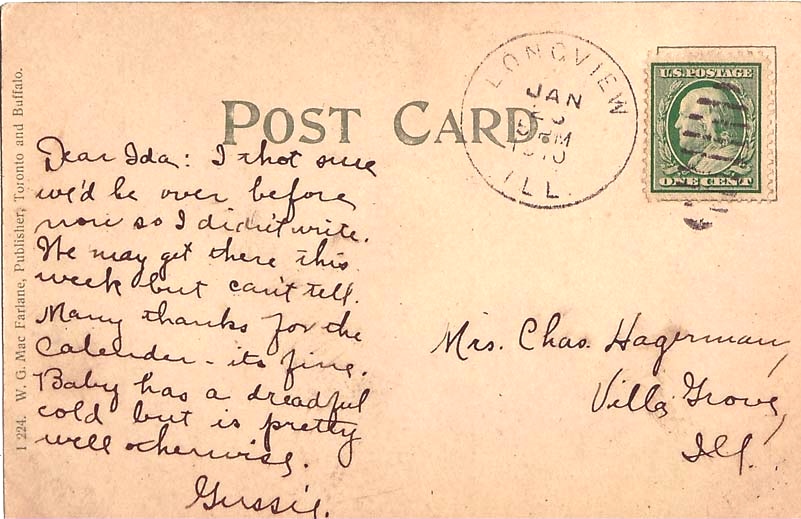 POST CARD
LONGVIEW
JAN
5 PM
1910
ILL.
U.S. POSTAGE
ONE CENT
Dear Ida: I thot sure
we'd be over before
now so I didn't write.
We may get there this
week but can't tell.
Many thanks for the
Calender - its fine.
Baby has a dreadful
cold but is pretty
well otherwise.
Gussie.
Mrs. Chas. Hagerman,
Villa Grove,
Ill.
1 224. W. G. Mac Farlane, Publisher, Toronto and Buffalo.